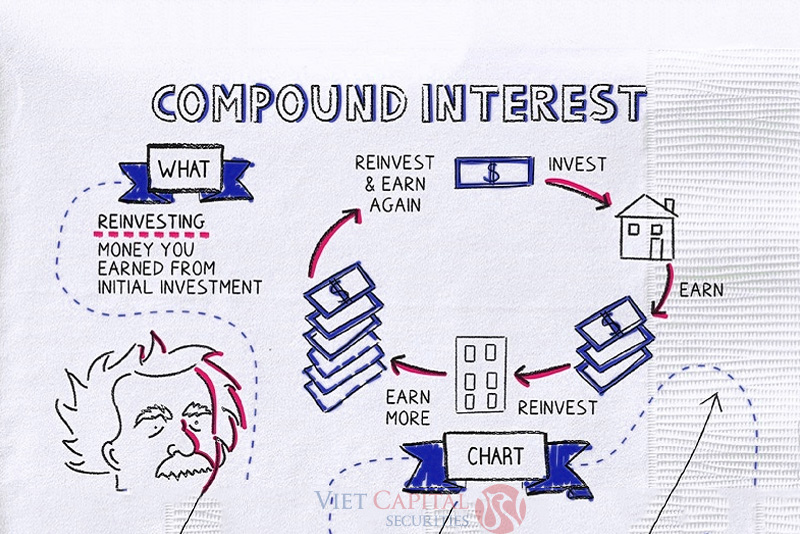 COMPOUND INTEREST
WHAT
REINVESTING
MONEY YOU
EARNED FROM
INITIAL INVESTMENT
REINVEST
& EARN
AGAIN
$
INVEST
EARN
$
REINVEST
EARN
MORE
$
CHART
VIET CAPITAL
SECURITIES